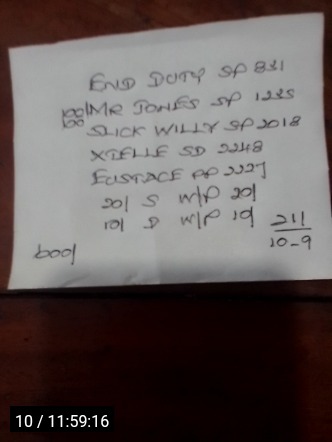 END DUTY SP 831
100/100 MR JONES SP 1235
SLICK WILLY SP 2018
XIELLE SD 2248
EUSTACE PP 2227
20/ S W/P 20/
10/ D W/P 10/
211/10-9
600/
10 / 11:59:16